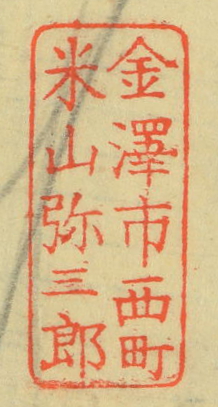 金澤市西町
米山弥三郎